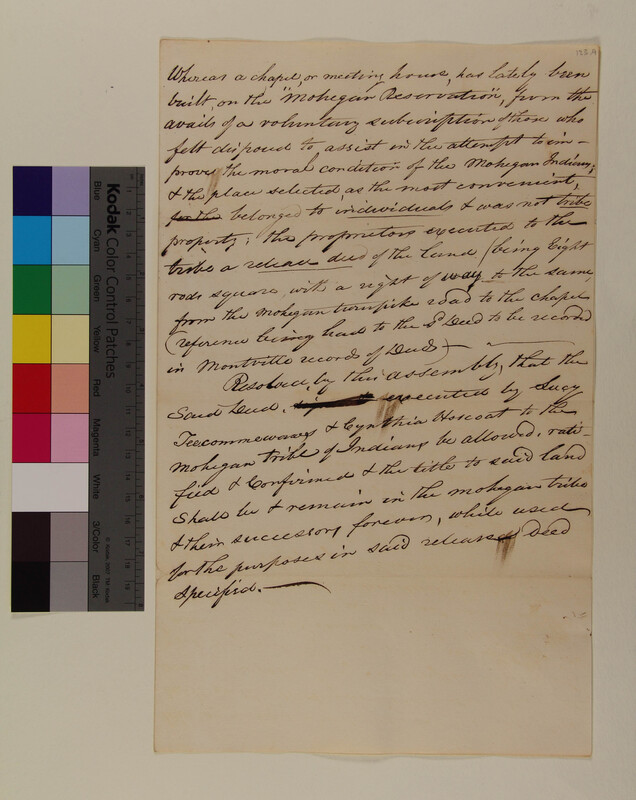 133.a
Whereas a chapel, or meeting house, has lately been
built, on the "Mohegan Reservation", from the
avails of a voluntary subscription of those who
felt disposed to assist in the attempt to im-
prove the moral condition of the Mohegan Indians;
& the place selected, as the most convenient,
for the belonged to individuals & was not tribe
property; the proprietors executed to the
tribe a release deed of the land (being Eight
rods square with a right of way to the same,
from the Mohegan turnpike road to the chapel
(reference being had to the Sd Deed to be recorded
in Montville records of Deeds) —
Resolved, by this assembly, that the
Said Deed, executed by Lucy
Teecommewaws & Cynthia Hoscoat to the
Mohegan tribe of Indians be allowed, rati-
fied & Confirmed & the title to said land
Shall be & remain in the Mohegan tribe
& their successors forever, while used
for the purposes in said release Deed
specified. —
Kodak Color Control Patches
Blue
Cyan
Green
Yellow
Red
Magenta
White
3/Color
Black